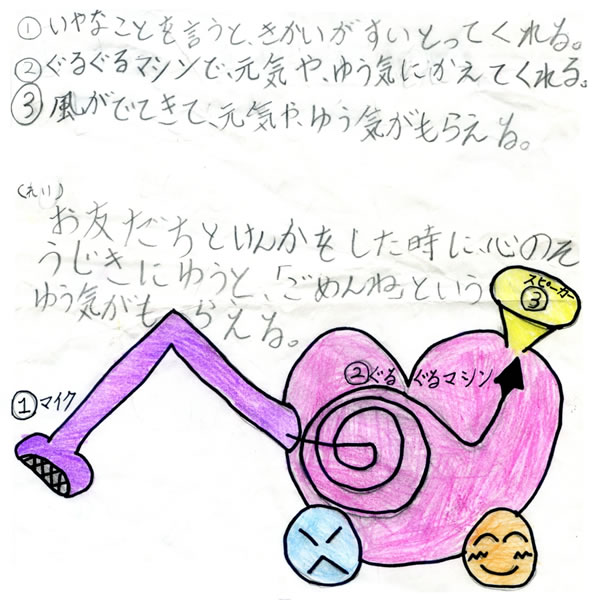 ①いやなことを言うと、きかいがすいとってくれる。
②ぐるぐるマシンで、元気や、ゆう気にかえてくれる。
③風がでてきて、元気や、ゆう気がもらえる。
(れい)
お友だちとけんかをした時に、心のそ
うじきにゆうと、「ごめんね」という
ゆう気がもらえる。
スピーカー
③
②ぐるぐるマシン
①マイク